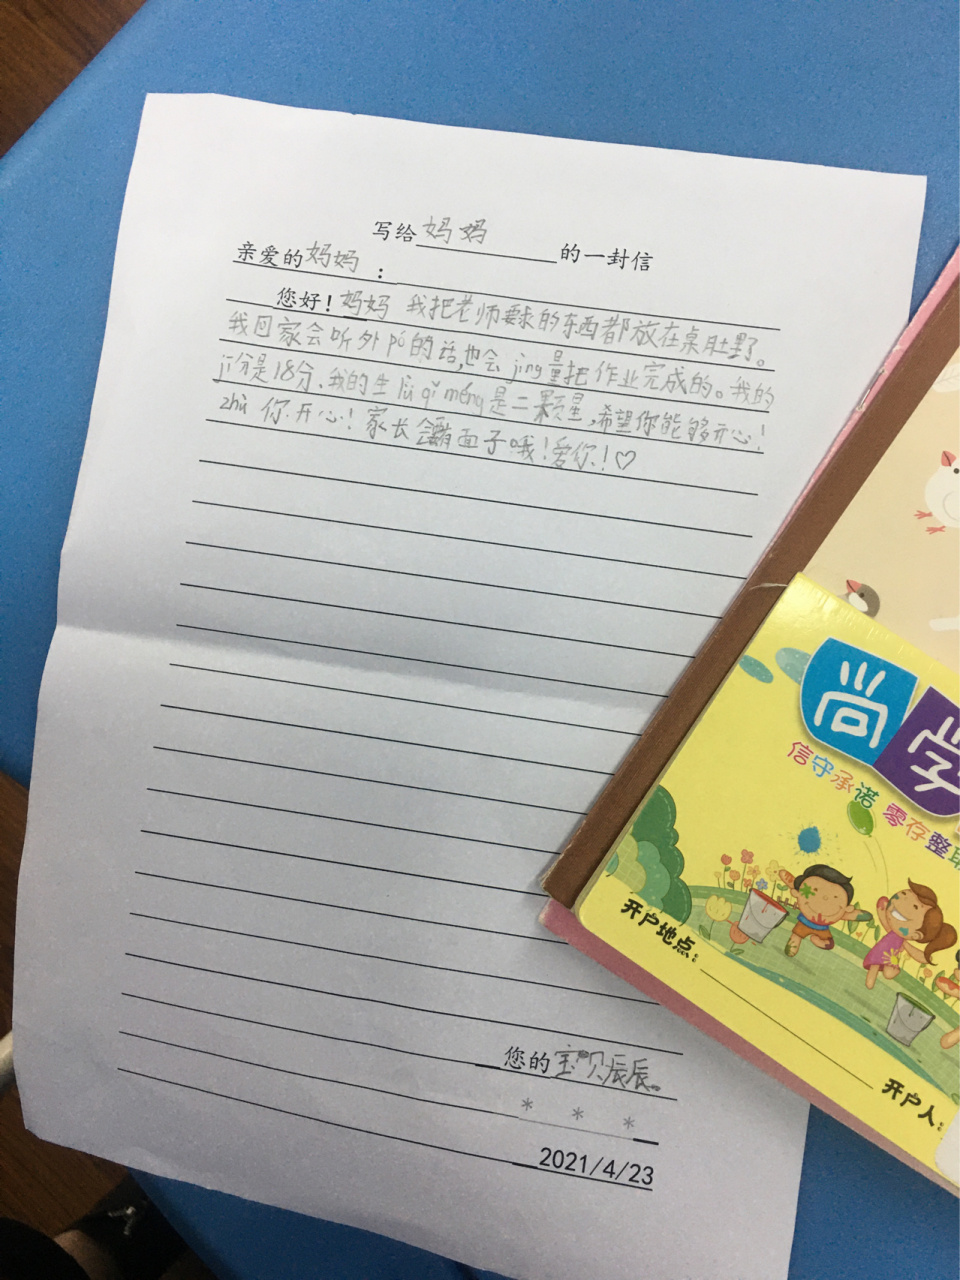 写给妈妈的一封信
亲爱的妈妈：
您好！妈妈 我把老师要求的东西都放在桌肚里了。
我回家会听外pó的话,也会jǐng量把作业完成的。我的
jī分是18分、我的生lù qǐ méng是二颗星,希望你能够开心！
zhù 你开心！家长会有面子哦！爱你！♡
您的宝贝辰辰。
* * *
2021/4/23
尚学
信守承诺 零存整
开户地点：
开户人：